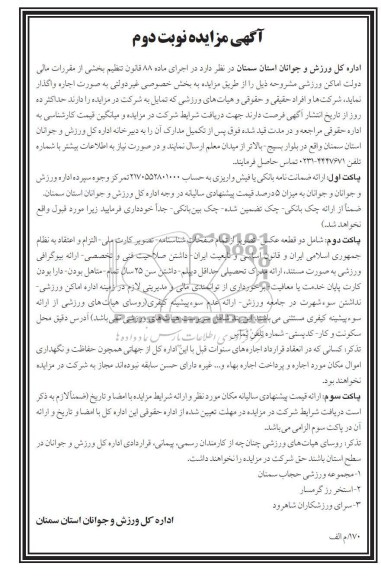 آگهی مزایده نوبت دوم
اداره کل ورزش و جوانان استان سمنان در نظر دارد در اجرای ماده ۸۸ قانون تنظیم بخشی از مقررات مالی
دولت اماکن ورزشی مشروحه ذیل را از طریق مزایده به بخش خصوصی غیردولتی به صورت اجاره واگذار
نماید، شرکت‌ها و افراد حقیقی و حقوقی و هیات‌های ورزشی که تمایل به شرکت در مزایده را دارند حداکثر ده
روز از تاریخ انتشار آگهی فرصت دارند جهت دریافت شرایط شرکت در مزایده و میانگین قیمت کارشناسی به
اداره حقوقی مراجعه و در مدت قید شده فوق پس از تکمیل مدارک آن را به دبیرخانه اداره کل ورزش و جوانان
استان سمنان واقع در بلوار بسیج- بالاتر از میدان معلم ارسال نمایند و در صورت نیاز به اطلاعات بیشتر با شماره
تلفن ۴۴۴۷۶۷۱-۰۲۳ تماس حاصل فرمایند.
پاکت اول: ارائه ضمانت نامه بانکی یا فیش واریزی به حساب ۲۱۷۰۵۵۲۸۰۱۰۰۰ تمرکز وجوه سپرده اداره ورزش
و جوانان و جوانان به میزان ۵ درصد قیمت پیشنهادی سالیانه در وجه اداره کل ورزش و جوانان استان سمنان.
ضمناً از ارائه چک بانکی- چک تضمین شده- چک بین‌بانکی- جداً خودداری فرمایید زیرا مورد قبول واقع
نخواهد شد.)
پاکت دوم: شامل دو قطعه عکس- تصویر از تمام صفحات شناسنامه- تصویر کارت ملی- التزام و اعتقاد به نظام
جمهوری اسلامی ایران و قانون اساسی و تابعیت ایران- داشتن صلاحیت فنی و تخصصی- ارائه بیوگرافی
ورزشی به صورت مستند، ارائه مدرک تحصیلی حداقل دیپلم- داشتن سن ۲۵ سال تمام- متاهل بودن- دارا بودن
کارت پایان خدمت یا معافیت (برخورداری از توانمندی مالی و مدیریتی لازم در زمینه اداره اماکن ورزشی-
نداشتن سوءشهرت در جامعه ورزش- ارائه عدم سوءپیشینه کیفری(روسای هیات‌های ورزشی از ارائه
سوءپیشینه کیفری مستثنی می‌باشند هیات‌های ورزشی نمی‌باشد) آدرس دقیق محل
سکونت و کار- کدپستی- شماره تلفن تماس
تذکر: کسانی که در انعقاد قرارداد اجاره‌های سنوات قبل با این اداره کل از جهاتی همچون حفاظت و نگهداری
اموال مکان مورد اجاره و پرداخت اجاره بهاء و... غیره دارای حسن سابقه نبوده‌اند مجاز به شرکت در مزایده
نخواهند بود.
پاکت سوم: ارائه قیمت پیشنهادی سالیانه مکان مورد نظر و ارائه شرایط مزایده با امضا و تاریخ (ضمناً لازم به ذکر
است دریافت شرایط شرکت در مزایده در مهلت تعیین شده از اداره حقوقی این اداره کل با امضا و تاریخ و ارائه
آن در پاکت سوم الزامی می‌باشد.
تذکر: روسای هیات‌های ورزشی چنان چه از کارمندان رسمی، پیمانی، قراردادی اداره کل ورزش و جوانان در
سطح استان باشند حق شرکت در مزایده را نخواهند داشت.
۱- مجموعه ورزشی حجاب سمنان
۲- استخر رز گرمسار
۳- سرای ورزشکاران شاهرود
اداره کل ورزش و جوانان استان سمنان
۱۷۰/م الف